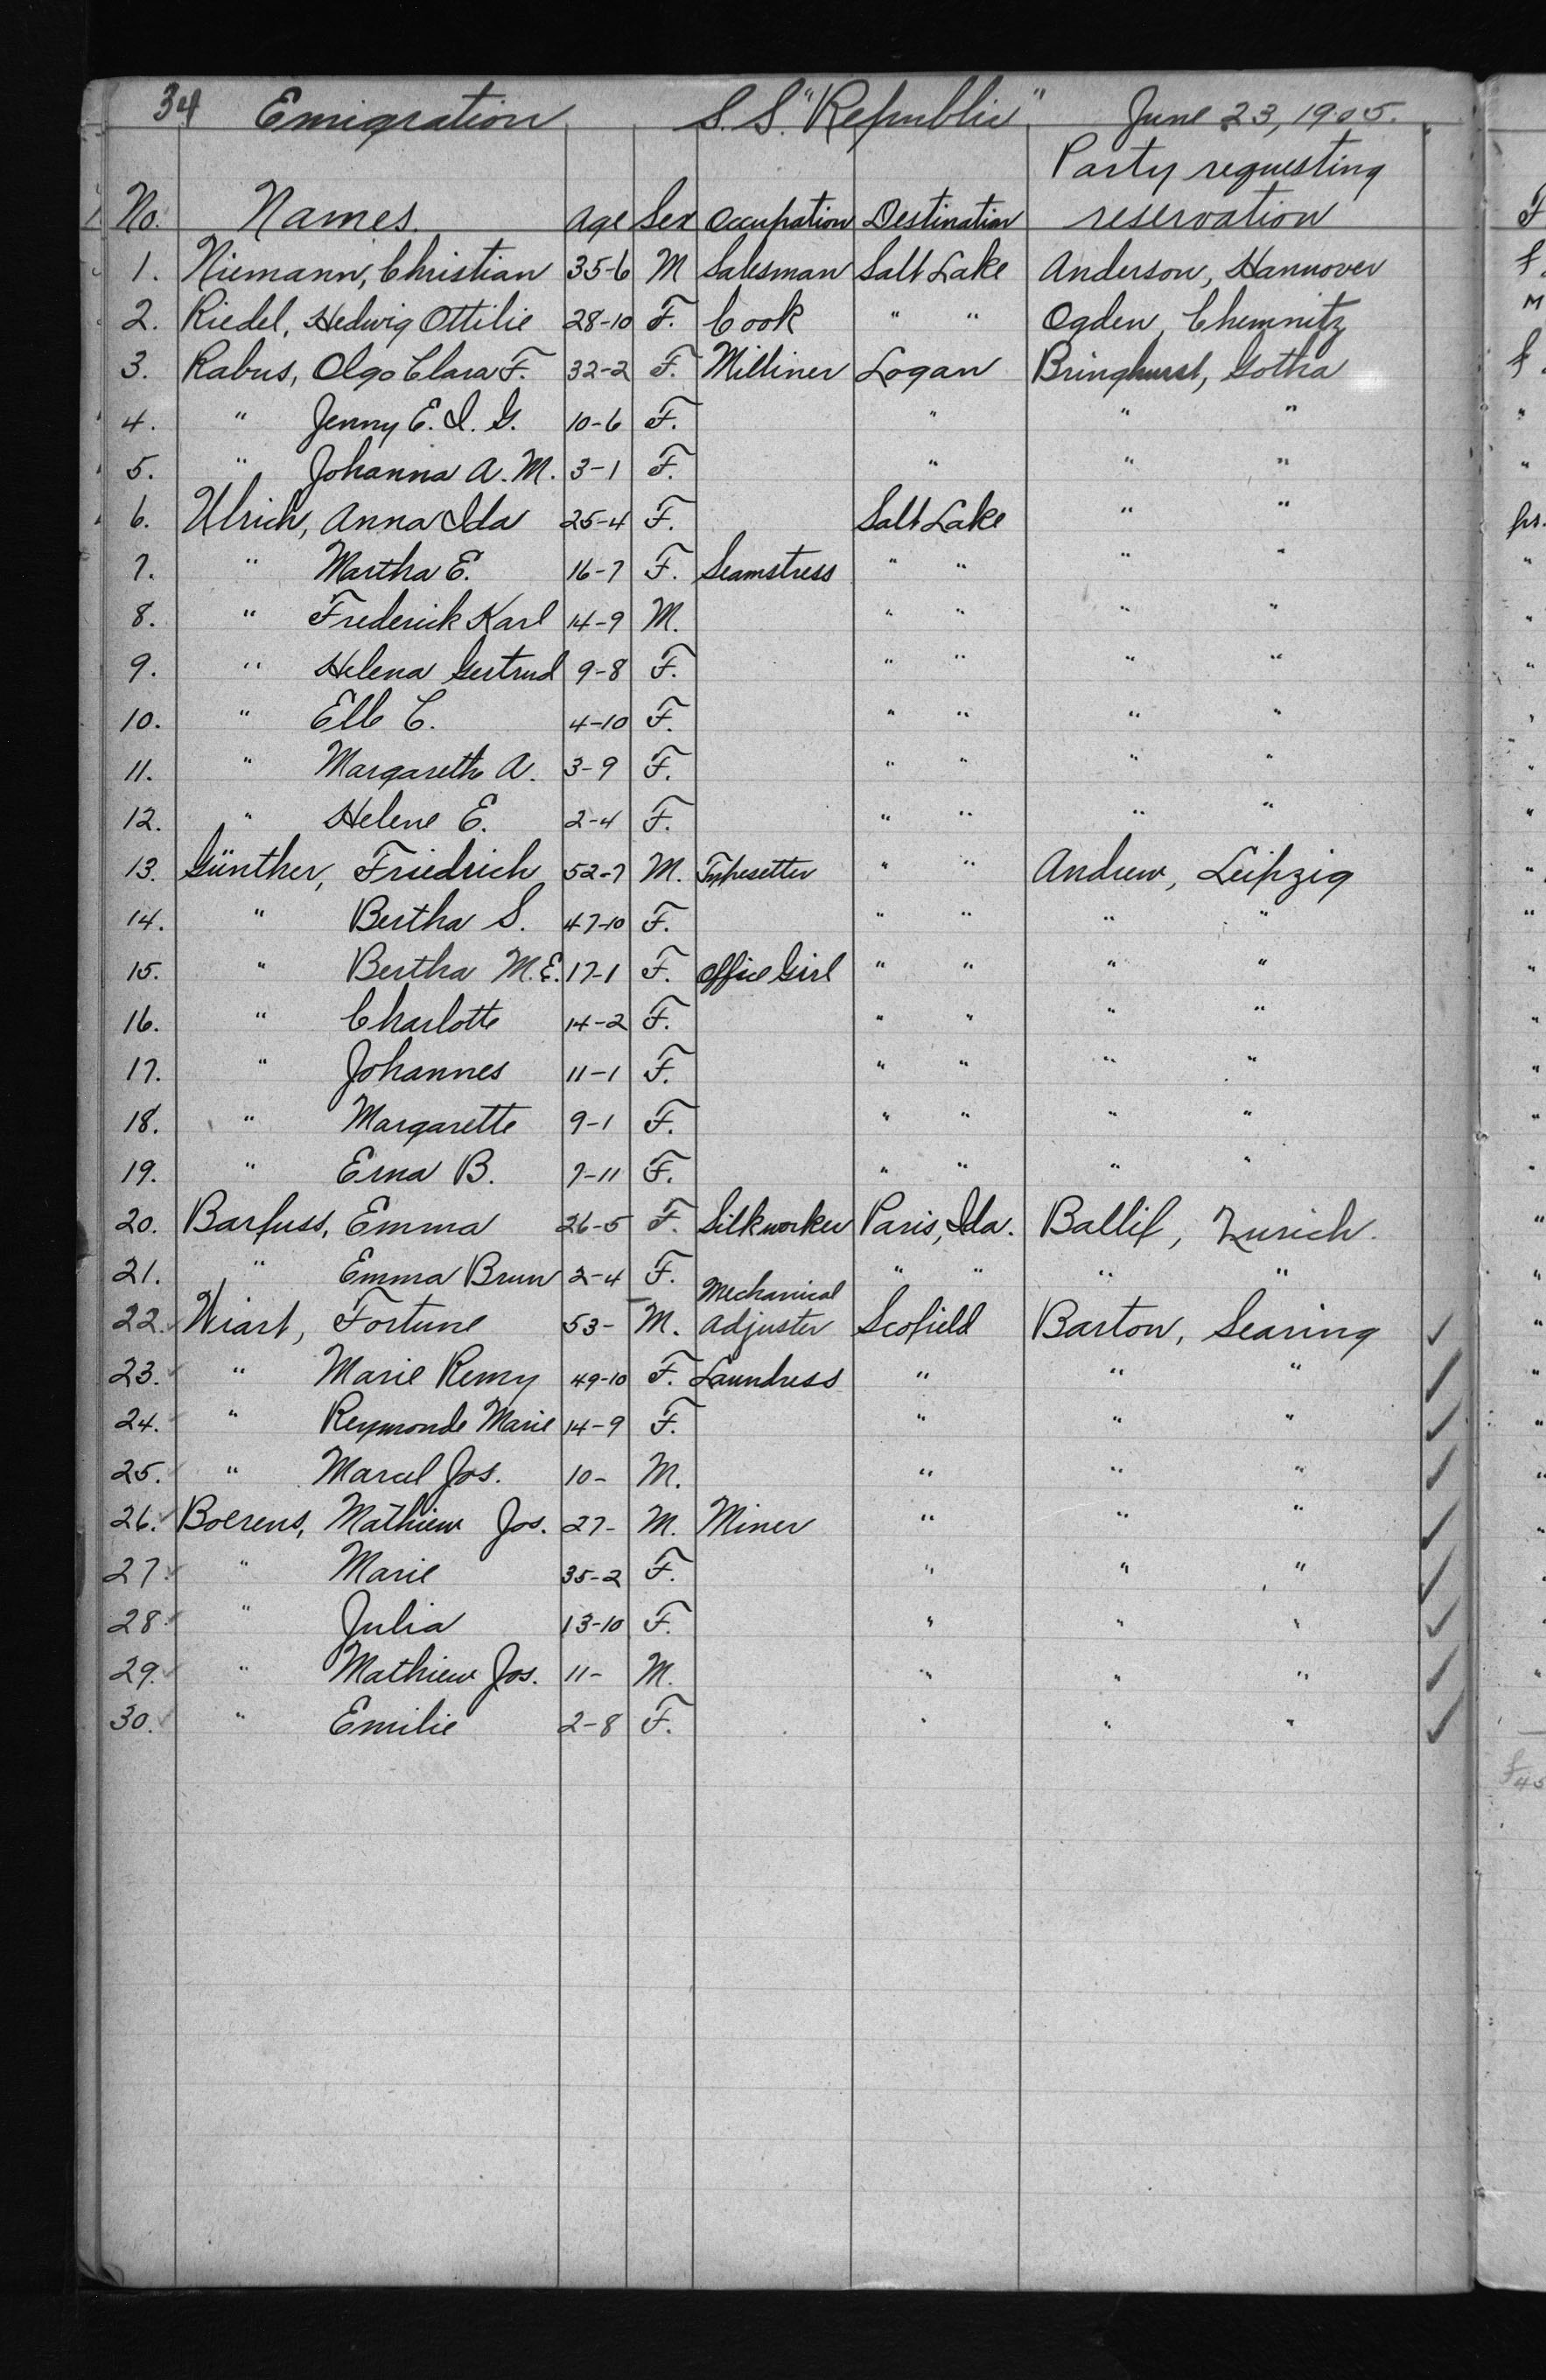 34 Emigration S.S. "Republic" June 23, 1905.
Party requesting
No. Names. Age Sex Occupation Destination reservation
1. Niemann, Christian 35-6 M Salesman Salt Lake Anderson, Hannover
2. Riedel, Hedwig Ottilie 28-10 F. Cook " " Ogden, Chemnitz
3. Rabus, Olga Clara F. 32-2 F. Milliner Logan Bringhurst, Gotha
4. " Jenny E. I. G. 10-6 F. " " "
5. " Johanna A. M. 3-1 F. " " "
6. Ulrich, Anna Ida 25-4 F. Salt Lake " "
7. " Martha E. 16-7 F. Seamstress " " " "
8. " Frederick Karl 14-9 M. " " " "
9. " Helena Gertrud 9-8 F. " " " "
10. " Elb C. 4-10 F. " " " "
11. " Margareth A. 3-9 F. " " " "
12. " Helene E. 2-4 F. " " " "
13. Günther, Friedrich 52-7 M. Typesetter " " Andrew, Leipzig
14. " Bertha S. 47-10 F. " " " "
15. " Bertha M.E. 17-1 F. Office Girl " " " "
16. " Charlotte 14-2 F. " " " "
17. " Johannes 11-1 F. " " " "
18. " Margarette 9-1 F. " " " "
19. " Erna B. 7-11 F. " " " "
20. Barfuss, Emma 26-5 F. Silkworker Paris, Ida. Ballif, Zurich.
21. " Emma Brun 2-4 F. " " " "
22. Wiart, Fortune 53- M. Mechanical Adjuster Scofield Barton, Searing ✓
23. " Marie Remy 49-10 F. Laundress " " " ✓
24. " Reymonde Marie 14-9 F. " " " ✓
25. " Marcel Jos. 10- M. " " " ✓
26. Boerens, Mathieu Jos. 27- M. Miner " " " ✓
27. " Marie 35-2 F. " " " ✓
28. " Julia 13-10 F. " " " ✓
29. " Mathieu Jos. 11- M. " " " ✓
30. " Emilie 2-8 F. " " " ✓